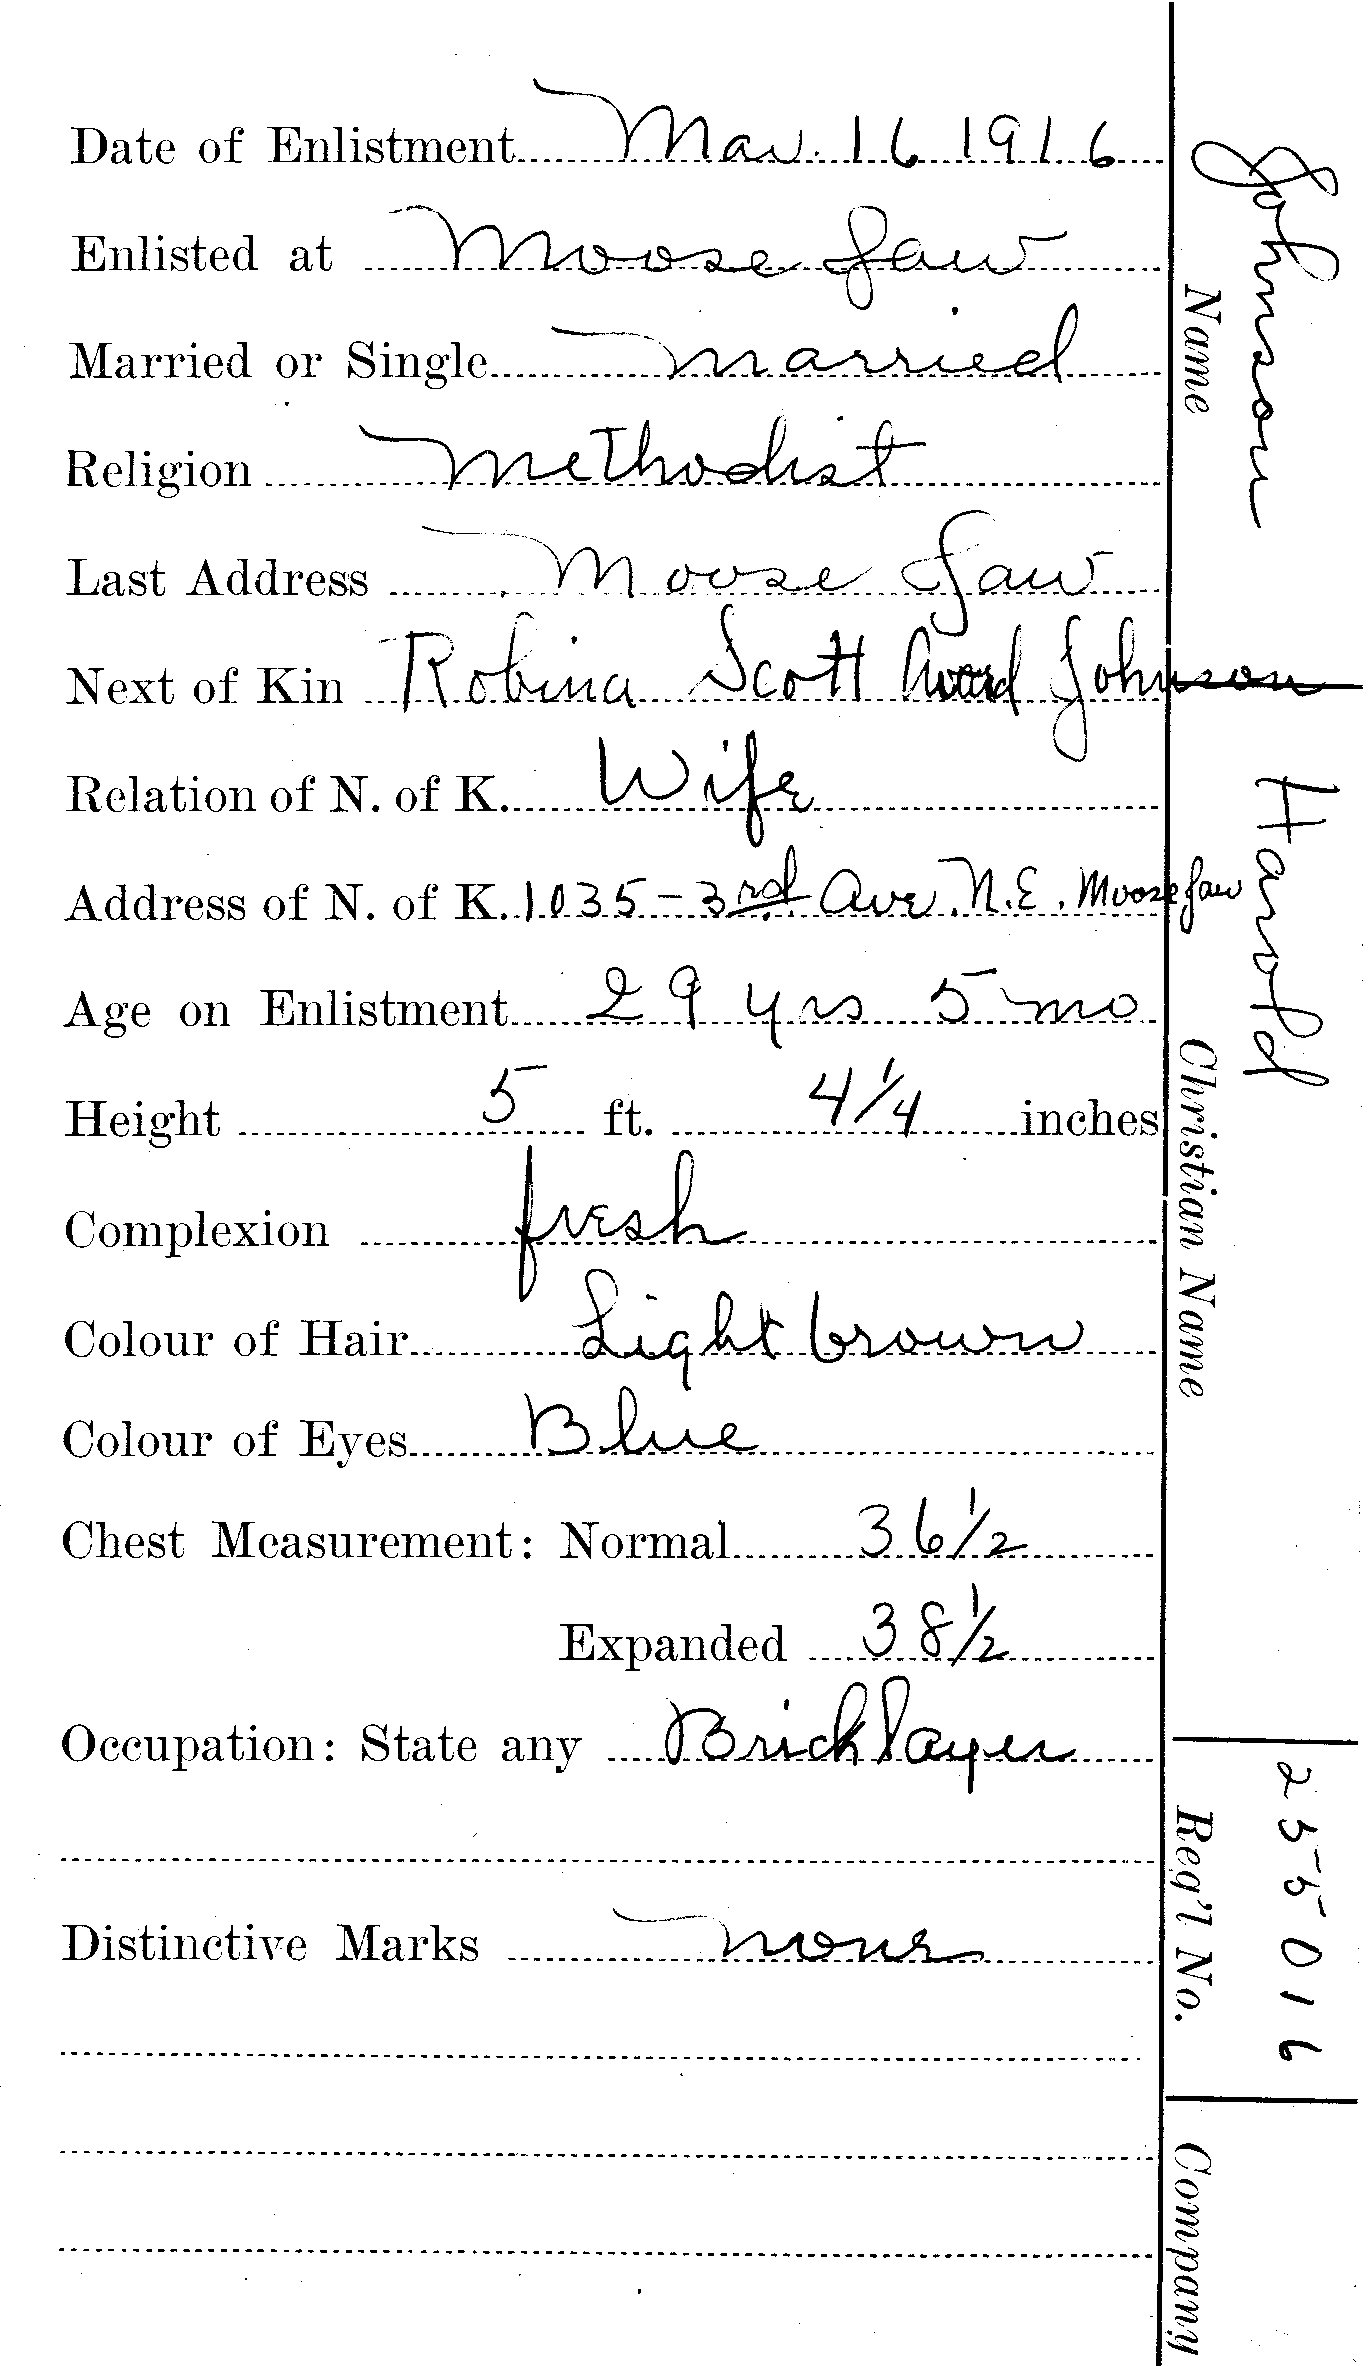 Date of Enlistment Mar. 16 1916
Enlisted at Moose Jaw
Married or Single married
Religion Methodist
Last Address Moose Jaw
Next of Kin Robina Scott Johnson
Relation of N. of K. Wife
Address of N. of K. 1035 - 3rd Ave. N.E. Moose Jaw
Age on Enlistment 29 yrs 5 mo
Height 5 ft. 4 1/4 inches
Complexion fresh
Colour of Hair Light brown
Colour of Eyes Blue
Chest Measurement: Normal 36 1/2
Expanded 38 1/2
Occupation: State any Bricklayer
Distinctive Marks none
Johnson
Name
Harold
Christian Name
255016
Reg'l No.
Company